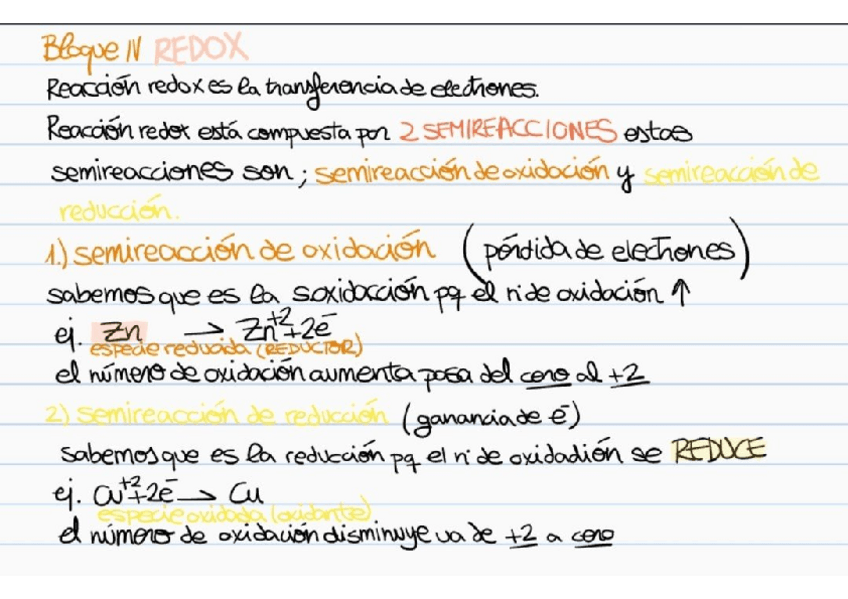 Bloque IV REDOX
Reacción redox es la transferencia de electrones.
Reacción redox está compuesta por 2 SEMIREACCIONES estas
semireacciones son ; semireacción de oxidación y semireacción de
reducción.
1.) semireacción de oxidación (pérdida de electrones)
sabemos que es la soxidacción pq el n: de oxidación ↑
ej. Zn → Zn+2 + 2e-
especie reducida (REDUCTOR)
el número de oxidación aumenta pasa del cero al +2
2) semireacción de reducción (ganancia de e-)
sabemos que es la reducción pq el n: de oxidadión se REDUCE
ej. Cu+2 + 2e- → Cu
especie oxidada (oxidante)
el número de oxidación disminuye va de +2 a cero